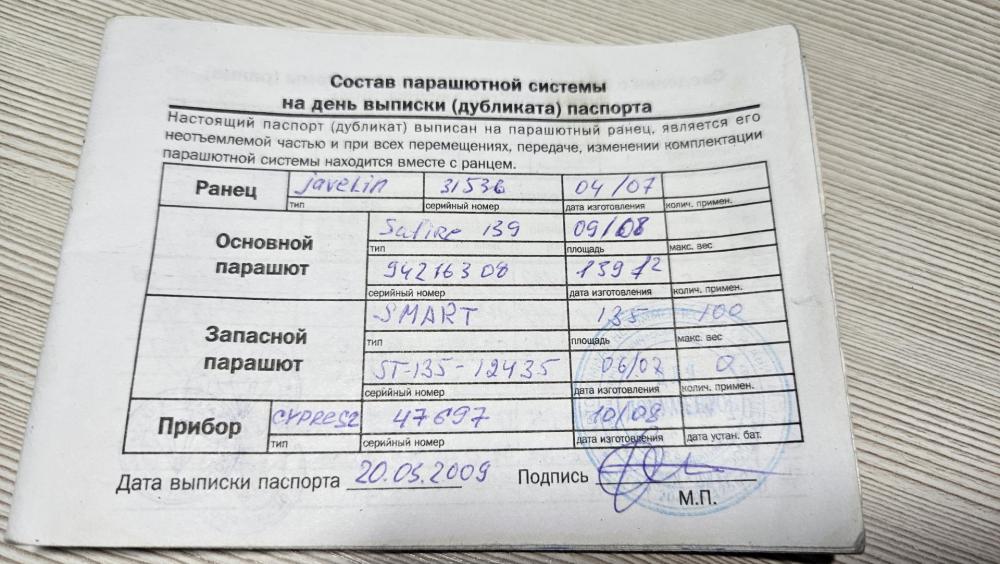 Состав парашютной системы
на день выписки (дубликата) паспорта
Настоящий паспорт (дубликат) выписан на парашютный ранец, является его
неотъемлемой частью и при всех перемещениях, передаче, изменении комплектации
парашютной системы находится вместе с ранцем.
Ранец javelin 31536 04/07
тип серийный номер дата изготовления колич. примен.
Основной парашют Safire 139 09/08
тип площадь макс. вес
94216308 139
серийный номер дата изготовления колич. примен.
Запасной парашют SMART 135 100
тип площадь макс. вес
ST-135-12435 06/07 0
серийный номер дата изготовления колич. примен.
Прибор CYPRES2 47697 10/08
тип серийный номер дата изготовления дата устан. бат.
Дата выписки паспорта 20.05.2009 Подпись
М.П.